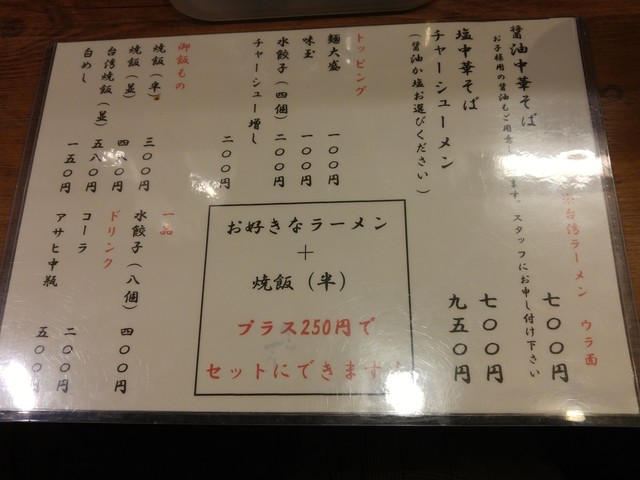 台湾ラーメン ウラ面
醤油中華そば 七〇〇円
お子様用の醤油もご用意し ます。スタッフにお申し付け下さい
塩中華そば 七〇〇円
チャーシューメン 九五〇円
(醤油か塩お選びください)
トッピング
麺大盛 一〇〇円
味玉 一〇〇円
水餃子(四個) 二〇〇円
チャーシュー増し 二〇〇円
御飯もの
焼飯(半) 三〇〇円
焼飯(並) 四八〇円
台湾焼飯(並) 五八〇円
白めし 一五〇円
一品
水餃子(八個) 四〇〇円
ドリンク
コーラ 二〇〇円
アサヒ中瓶 五〇〇円
お好きなラーメン
+
焼飯(半)
プラス250円で
セットにできます!